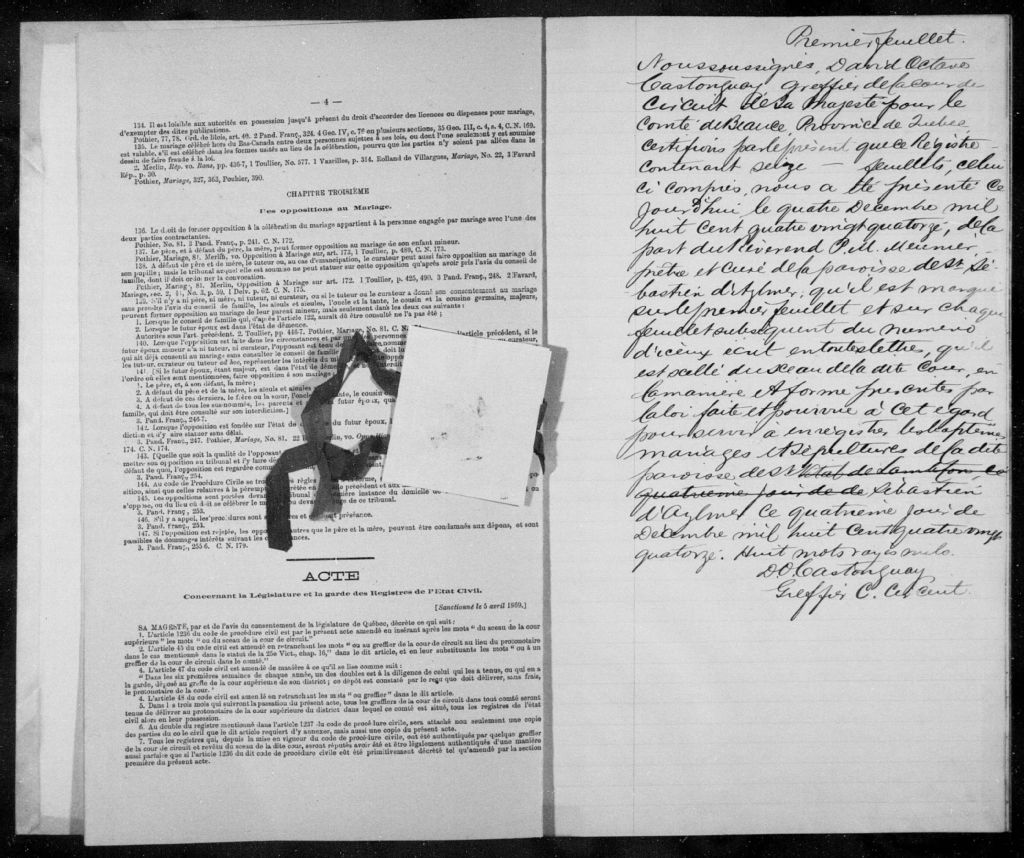 — 4 —
134. Il est loisible aux autorités en possession jusqu'à présent du droit d'accorder des licences ou dispenses pour mariage,
d'exempter des dites publications.
Pothier, 77, 78. Ord. de Blois, art. 40. 2 Pand. Franç., 324. 4 Geo. IV, c. 76 en plusieurs sections, 35 Geo. III, c. 4, s. 4, C. N. 169.
135. Le mariage célébré hors du Bas-Canada entre deux personnes sujettes à ses lois, ou dont l'une seulement y est soumise
est valable, s'il est célébré dans les formes usités au lieu de la célébration, pourvu que les parties n'y soient pas allées dans le
dessin de faire fraude à la loi.
2. Merlin, Rép. vo. Bans, pp. 436-7, 1 Toullier, No. 577. 1 Vazeilles, p. 314. Rolland de Villargues, Mariage, No. 22, 3 Favard
Rép., p. 30.
Pothier, Mariage, 327, 363, Pouhier, 390.
CHAPITRE TROISIÈME
Des oppositions au Mariage.
136. Le droit de former opposition à la célébration du mariage appartient à la personne engagée par mariage avec l'une des
deux parties contractantes.
Pothier. No. 81. 3 Pand. Franç., p. 241. C. N. 172.
137. Le père, et à défaut du père, la mère, peut former opposition au mariage de son enfant mineur.
Pothier, Mariage, 81. Merlin, vo. Opposition à Mariage, sur art. 173, 1 Toullier, p. 489, C. N. 173.
138. A défaut de père et de mère, le tuteur ou, au cas d'émancipation, le curateur peut aussi faire opposition au mariage de
son pupille; mais le tribunal auquel elle est soumise ne peut statuer sur cette opposition qu'après avoir pris l'avis du conseil de
famille, dont il doit ordonner la convocation.
Pothier, Mariage, 81. Merlin, Opposition à Mariage sur art. 172. 1 Toullier, p. 425, 490. 3 Pand. Franç., 248. 2 Favard,
Mariage, sec. 2, 41, No. 3, p. 59. 1 Delv. p. 62. C. N. 175.
139. S'il n'y a ni père, ni mère, ni tuteur, ni curateur, ou si le tuteur ou le curateur a donné son consentement au mariage
sans prendre l'avis du conseil de famille, les aïeuls et aïeules, l'oncle et la tante, le cousin et la cousine germains, majeurs,
peuvent former opposition au mariage de leur parent mineur, mais seulement dans les deux cas suivants :
1. Lorsque le conseil de famille qui, d'après l'article 122, aurait dû être consulté ne l'a pas été ;
2. Lorsque le futur époux est dans l'état de démence.
Autorités sous l'art. précédent. 2. Toullier, pp. 446-7. Pothier, Mariage, No. 81. C. N.
140. Lorsque l'opposition est faite dans les circonstances et par
personnes
l'article précédent, si le
futur époux mineur n'a ni tuteur, ni curateur, l'opposant est tenu de
curateur,
qui ait déjà consenti au mariage sans consulter le conseil de famille
les tuteur, curateur ou tuteur ad hoc, représenter les intérêts du
141. [Si le futur époux, étant majeur, est dans l'état de
l'ordre où elles sont mentionnées, faire opposition à son mariage
1. Le père, et, à son défaut, la mère ;
2. A défaut du père et de la mère, les aïeuls et aïeules
3. A défaut de ces derniers, le frère ou la sœur, l'oncle
tante, le cousin
4. A défaut de tous les sus-nommés, les parents et
futur époux, qui
famille, qui doit être consulté sur son interdiction.]
3. Pand. Franç., 246-7.
142. Lorsque l'opposition est fondée sur l'état de
du futur époux,
diction et d'y aire statuer sans délai.
3. Pand. Franç., 247. Pothier, Mariage, No. 81. 22
vo.
174. C. N. 174.
143. [Quelle que soit la qualité de l'opposant
mettre son opposition au tribunal et l'y faire
défaut de quoi, l'opposition est regardée comme
3. Pand. Franç., 254.
144. Au Code de Procédure Civile se
règles
sition, ainsi que celles relatives à la
précédent et aux
145. Les oppositions sont portées devant
instance du domicile
s'oppose, ou du lieu où doit se célébrer le
de ce tribunal.
3. Pand. Franç., 253.
146. S'il y a appel, les procédures sont
et ont préséance.
3. Pand. Franç., 253.
147. Si l'opposition est rejetée, les
autres que le père et la mère, peuvent être condamnés aux dépens, et sont
passibles de dommages intérêts suivant les circonstances.
3. Pand. Franç., 255-6. C. N. 179.
ACTE
Concernant la Législature et la garde des Registres de l'Etat Civil.
[Sanctionné le 5 avril 1869.]
SA MAGESTÉ, par et de l'avis du consentement de la législature de Québec, décrète ce qui suit :
1. L'article 1236 du code de procédure civil est par le présent acte amendé en insérant après les mots “ du sceau de la cour
supérieure ” les mots “ ou du sceau de la cour de circuit.”
2. L'article 45 du code civil est amendé en retranchant les mots “ ou au greffier de la cour de circuit au lieu du protonotaire
dans le cas mentionné dans le statut de la 25e Vict., chap. 16,” dans le dit article, et en leur substituants les mots “ ou à un
greffier de la cour de circuit dans le comté.”
4. L'article 47 du code civil est amendé de manière à ce qu'il se lise comme suit :
“ Dans les six premières semaines de chaque année, un des doubles est à la diligence de celui qui les a tenus, ou qui en a
la garde, déposé au greffe de la cour supérieure de son district ; ce dépôt est constaté par le reçu que doit délivrer, sans frais,
le protonotaire de la cour. ”
4. L'article 48 du code civil est amendé en retranchant les mots “ ou greffier ” dans le dit article.
5. Dans les trois mois qui suivront la passation du présent acte, tous les greffiers de la cour de circuit dans tout comté seront
tenus de délivrer au protonotaire de la cour supérieure du district dans lequel ce comté est situé, tous les registres de l'état
civil alors en leur possession.
6. Au double du registre mentionné dans l'article 1237 du code de procédure civile, sera attaché non seulement une copie
des parties du code civil que le dit article requiert d'y annexer, mais aussi une copie du présent acte.
7. Tous les registres qui, depuis la mise en vigueur du code de procédure civile, ont été authentiqués par quelque greffier
de la cour de circuit et revêtu du sceau de la dite cour, seront réputés avoir été et être légalement authentiqués d'une manière
aussi parfaite que si l'article 1236 du dit code de procédure civile eût été primitivement décrété tel qu'amendé par la section
première du présent acte.
Premier feuillet.
Nous soussignés, David Octave
Castonguay, greffier de la cour de
Circuit de Sa Majesté pour le
Comté de Beauce, Province de Québec,
certifions par le présent que ce Régistre
contenant seize — feuillets, celui
ci compris, nous a été présenté ce
jourd'hui le quatre Décembre mil
huit cent quatre vingt quatorze, de la
part du Révérend P. M. Meunier,
prêtre et Curé de la paroisse de St Sé
bastien d'Aylmer; qu'il est marqué
sur le premier feuillet et sur chaque
feuillet subséquent du numéro
d'iceux écrit en toutes lettres, qu'il
est scellé du sceau de la dite Cour, en
la manière et forme prescrites par
la loi faite et pourvue à cet égard
pour servir à enregistrer les baptêmes
mariages et sépultures de la dite
paroisse de St
quatrième jour de de Sébastien
d'Aylmer ce quatrième jour de
Décembre mil huit cent quatre vingt
quatorze. Huit mots rayés nuls.
D O Castonguay
Greffier C. Circuit.